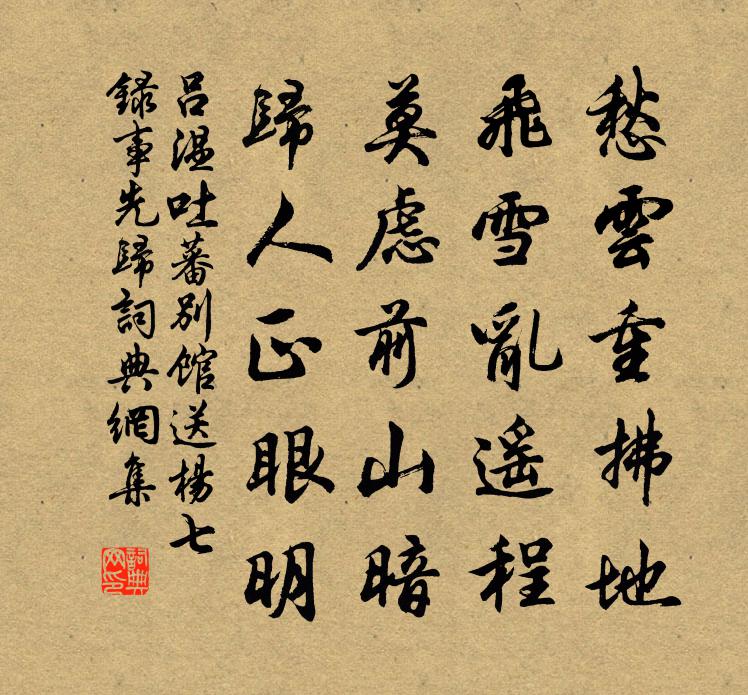 愁雲重拂地
飛雪亂遥程
莫慮前山暗
歸人正眼明
吕温吐蕃別館送楊七
録事先歸詞典網集
詞典网印